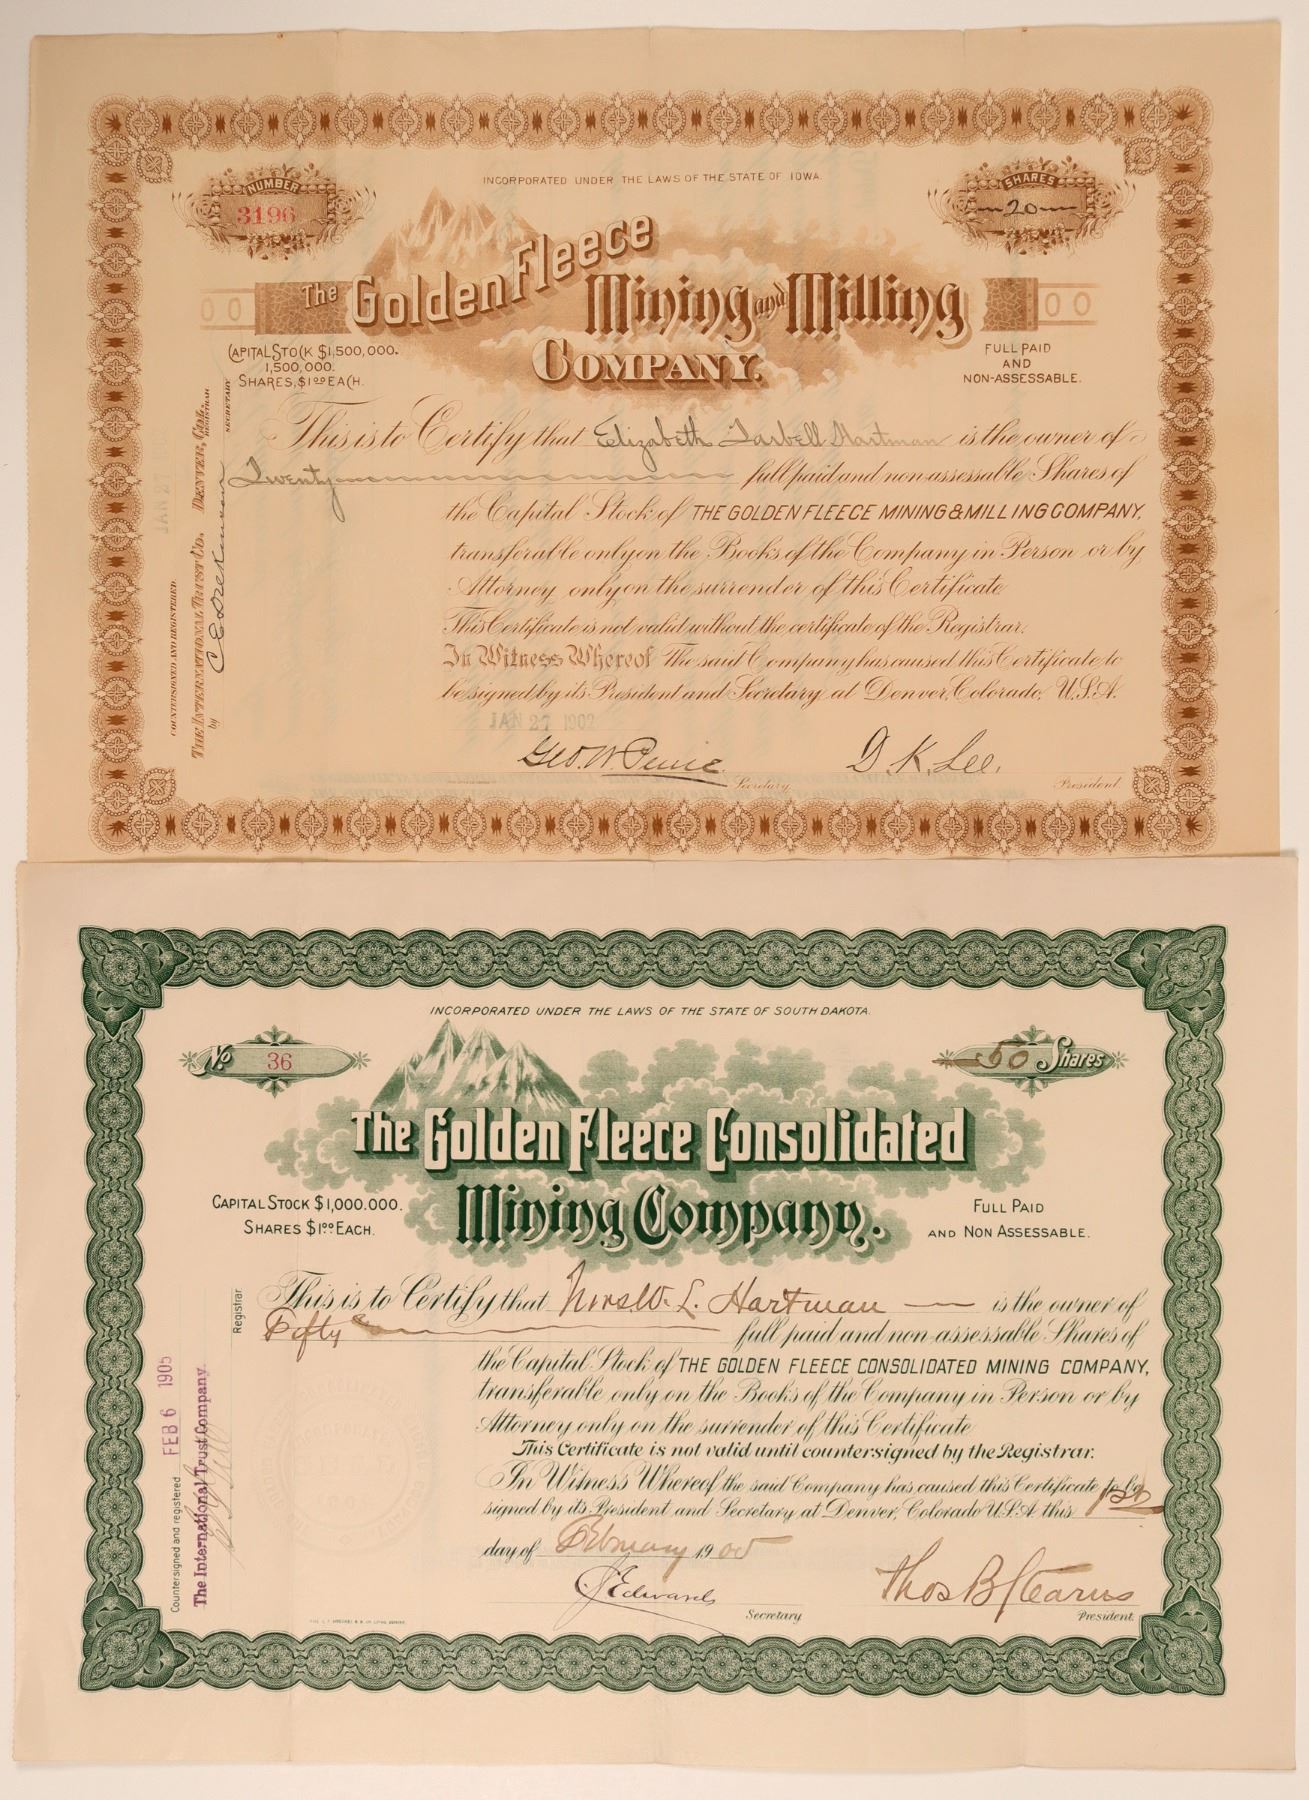 INCORPORATED UNDER THE LAWS OF THE STATE OF IOWA.
NUMBER
3196
SHARES
20
The Golden Fleece
Mining and Milling
COMPANY.
CAPITAL STOCK $1,500,000.
1,500,000.
SHARES, $1.00 EACH.
FULL PAID
AND
NON-ASSESSABLE.
This is to Certify that Elizabeth Tarbell Hartman is the owner of
Twenty full paid and non assessable Shares of
the Capital Stock of THE GOLDEN FLEECE MINING & MILLING COMPANY,
transferable only on the Books of the Company in Person or by
Attorney only on the surrender of this Certificate
This Certificate is not valid without the certificate of the Registrar.
In Witness Whereof The said Company has caused this Certificate to
be signed by its President and Secretary at Denver, Colorado, U.S.A.
JAN 27 1902
Geo. W.
Secretary
D. K. Lee.
President.
COUNTERSIGNED AND REGISTERED
THE INTERNATIONAL TRUST CO. DENVER, COL.
REGISTRAR
by
SECRETARY
JAN 27
INCORPORATED UNDER THE LAWS OF THE STATE OF SOUTH DAKOTA.
No 36
50 Shares
The Golden Fleece Consolidated
Mining Company.
CAPITAL STOCK $1,000.000.
SHARES $1.00 EACH.
FULL PAID
AND NON ASSESSABLE.
This is to Certify that W. L. Hartman is the owner of
Fifty full paid and non-assessable Shares of
the Capital Stock of THE GOLDEN FLEECE CONSOLIDATED MINING COMPANY,
transferable only on the Books of the Company in Person or by
Attorney only on the surrender of this Certificate
This Certificate is not valid until countersigned by the Registrar.
In Witness Whereof the said Company has caused this Certificate to be
signed by its President and Secretary at Denver, Colorado U.S.A. this 1st
day of February 1905
Edwards
Secretary
Thos B Stearns
President.
Countersigned and registered FEB 6 1905
The International Trust Company.
Registrar